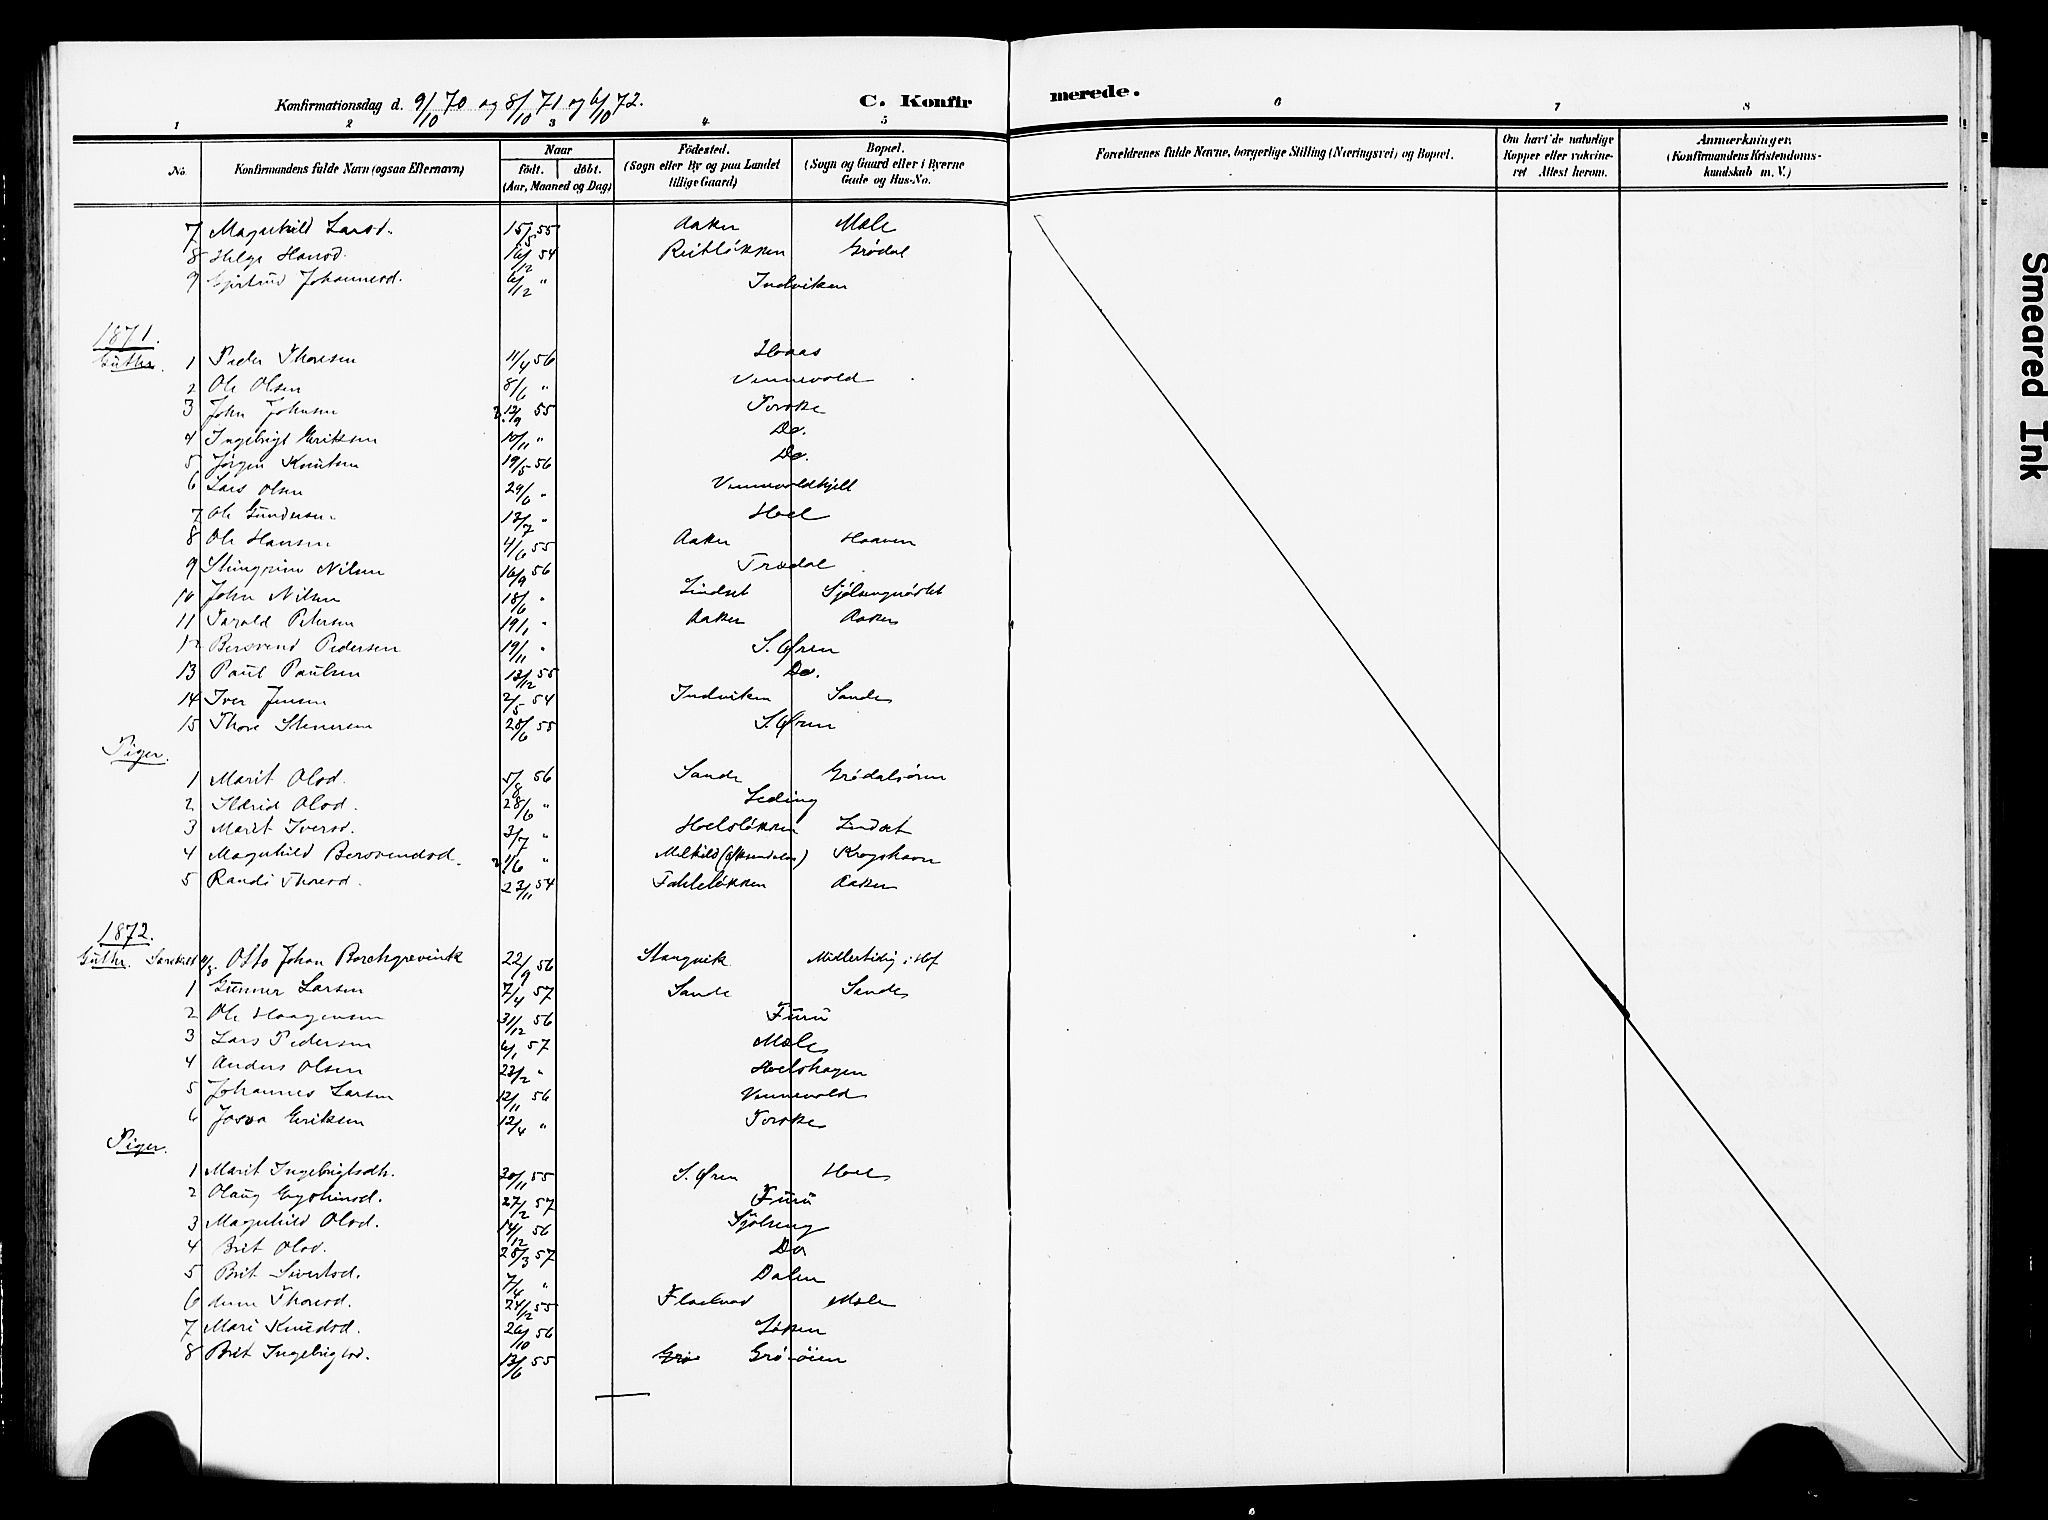 Konfirmationsdag d. 9/10 70 og 8/10 71 og 6/10 72.
C. Konfirmerede.
1 2 3 4 5 6 7 8
No. Konfirmandens fulde Navn (ogsaa Efternavn) Naar født. døbt. (Aar, Maaned og Dag) Fødested. (Sogn eller By og paa Landet tillige Gaard) Bopæl. (Sogn og Gaard eller i Byerne Gade og Hus-No. Forældrenes fulde Navne, borgerlige Stilling (Næringsvei) og Bopæl. Om havt de naturlige Kopper eller vakcineret Attest herom. Anmærkninger. (Konfirmandens Kristendomskundskab m. V.)
7 Magnhild Larsd. 15/5 55 Aaker Mæle
8 Helge Hansd. 16/12 54 Reitløkken Grødal
9 Gjertrud Johannesd. 6/12 " Indviken
1871.
Gutter.
1 Peder Thoresen 11/4 56 Hoaas
2 Ole Olsen 8/6 " Vennevold
3 John Johnsen 12/9 55 Torske
4 Ingebrigt Eriksen 10/11 " Do.
5 Jørgen Knutsen 19/5 56 Do.
6 Lars Olsen 29/6 " Vennevoldhjell
7 Ole Gundersen 12/7 " Hoel
8 Ole Hansen 4/6 55 Aaker Haaven
9 Steingrim Nilsen 16/9 56 Trædal
10 John Nilsen 18/6 " Lindset
11 Harald Petersen 19/1 " Aaker Aaker
12 Bersvend Pedersen 19/11 " S. Øren
13 Paul Paulsen 13/12 55 Do.
14 Iver Jensen 2/5 54 Indviken Sande
15 Thore Stenersen 28/6 55 S. Øren
Piger.
1 Marit Olsd. 5/8 56 Sande Grødalsøren
2 Sidrid Olsd. 28/6 " Leding
3 Marit Iversd. 3/7 " Hoelsløkken Lindset
4 Magnhild Bersvendsd. 21/6 " Melkild (Øksendalen) Krogshavn
5 Randi Thoresd. 23/11 54 Fahleløkken Aaker
1872.
Gutter. Særskilt Otto Johan Borchgrevink 22/9 56 Stangvik Midlertidig i Hof
1 Gunner Larsen 7/4 57 Sande Sande
2 Ole Haagensen 31/12 56 Furu
3 Lars Pedersen 6/1 57 Mæle
4 Anders Olsen 23/2 " Hoelshagen
5 Johannes Larsen 12/11 56 Vennevold
6 Josva Eriksen 12/4 " Torske
Piger.
1 Marit Ingebrigtsdtr. 30/11 55 S. Øren Hoel
2 Olaug Eysteinsd. 27/2 57 Furu
3 Magnhild Olsd. 14/12 56 Sjølseng
4 Brit Olsd. 28/3 57 Do
5 Brit Sivertsd. 7/4 " Dalen
6 Anne Thoresd. 24/12 55 Flaekvad Mæle
7 Mari Knudsd. 26/10 56 Løken
8 Brit Ingebrigtsd. 13/6 55 Grø Grø-øien
Smeared Ink